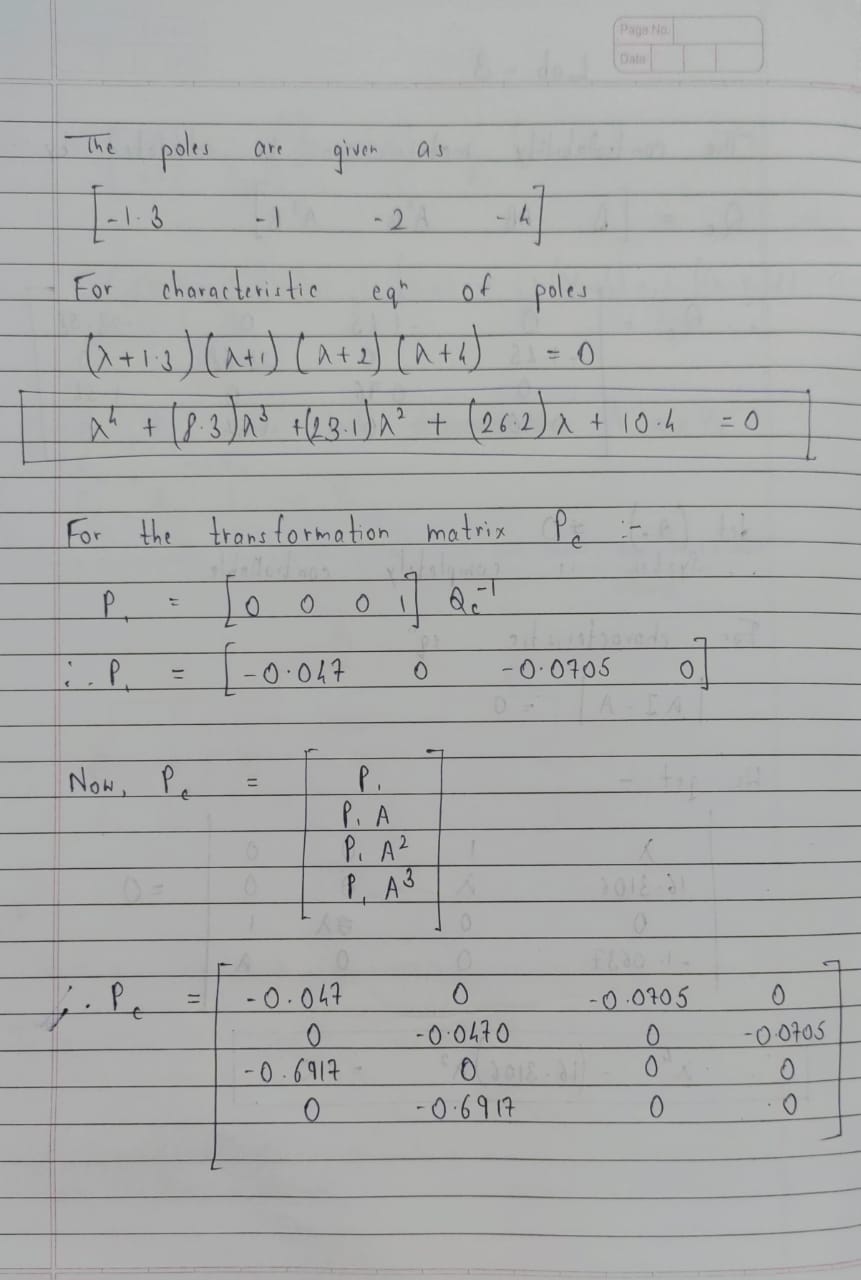 Page No.
Date
The poles are given as
[-1.3 -1 -2 -4]
For characteristic eqⁿ of poles
(λ+1.3) (λ+1) (λ+2) (λ+4) = 0
λ⁴ + (8.3)λ³ +(23.1)λ² + (26.2)λ + 10.4 = 0
For the transformation matrix Pc :-
P₁ = [0 0 0 1] Qc⁻¹
∴ P₁ = [-0.047 0 -0.0705 0]
Now, Pc = [P₁
P₁ A
P₁ A²
P₁ A³]
∴ Pc = [-0.047 0 -0.0705 0
0 -0.0470 0 -0.0705
-0.6917 0 0 0
0 -0.6917 0 0]